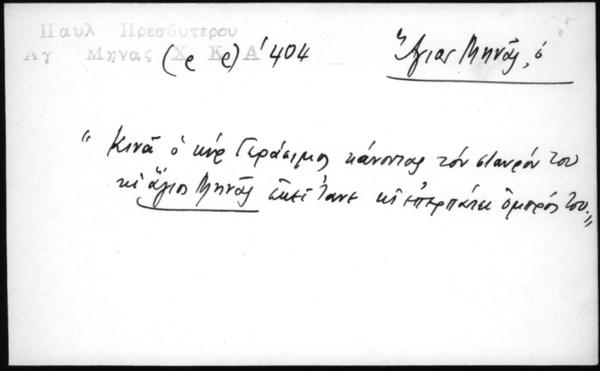 Παυλ Πρεσβυτερου
Αγ Μηνας Χ Κ Α
(ρ ρ) ' 404
Ἅγιος Μηνᾶς, ὁ
" Κινᾶ ὁ κύρ Γεράσιμος κάνοντας τόν σταυρόν του
κι ἅγιος Μηνᾶς ἐκεῖ ἦτανε κι ἐπερπάτιε ὀμπρός του. "